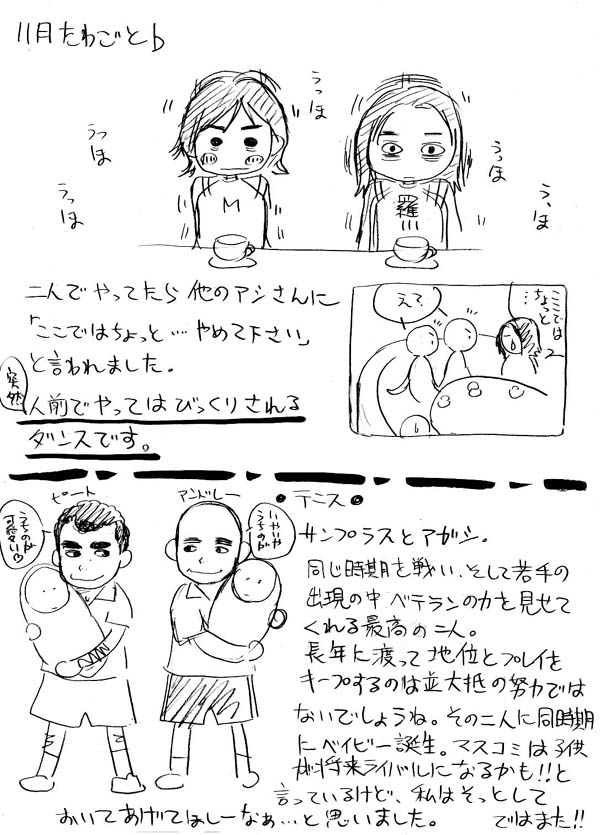 11月たわごとb
うっほ
うっほ
うっほ
うっほ
うっほ
M
羅
二人でやってたら他のアシさんに
「ここではちょっと…やめて下さい」
と言われました。
突然
人前でやってはびっくりされる
ダンスです。
え?
ここでは
ちょっと…
ピート
うちのが
可愛い♡
アンドレー
いやいや
うちのが
•テニス•
サンプラスとアガシ。
同じ時期を戦い、そして若手の
出現の中ベテランの力を見せて
くれる最高の二人。
長年に渡って地位とプレイを
キープするのは並大抵の努力では
ないでしょうね。その二人に同時期
にベイビー誕生。マスコミは子供
が将来ライバルになるかも!!と
言っているけど、私はそっとして
おいてあげてほしーなぁ…と思いました。
ではまた!!